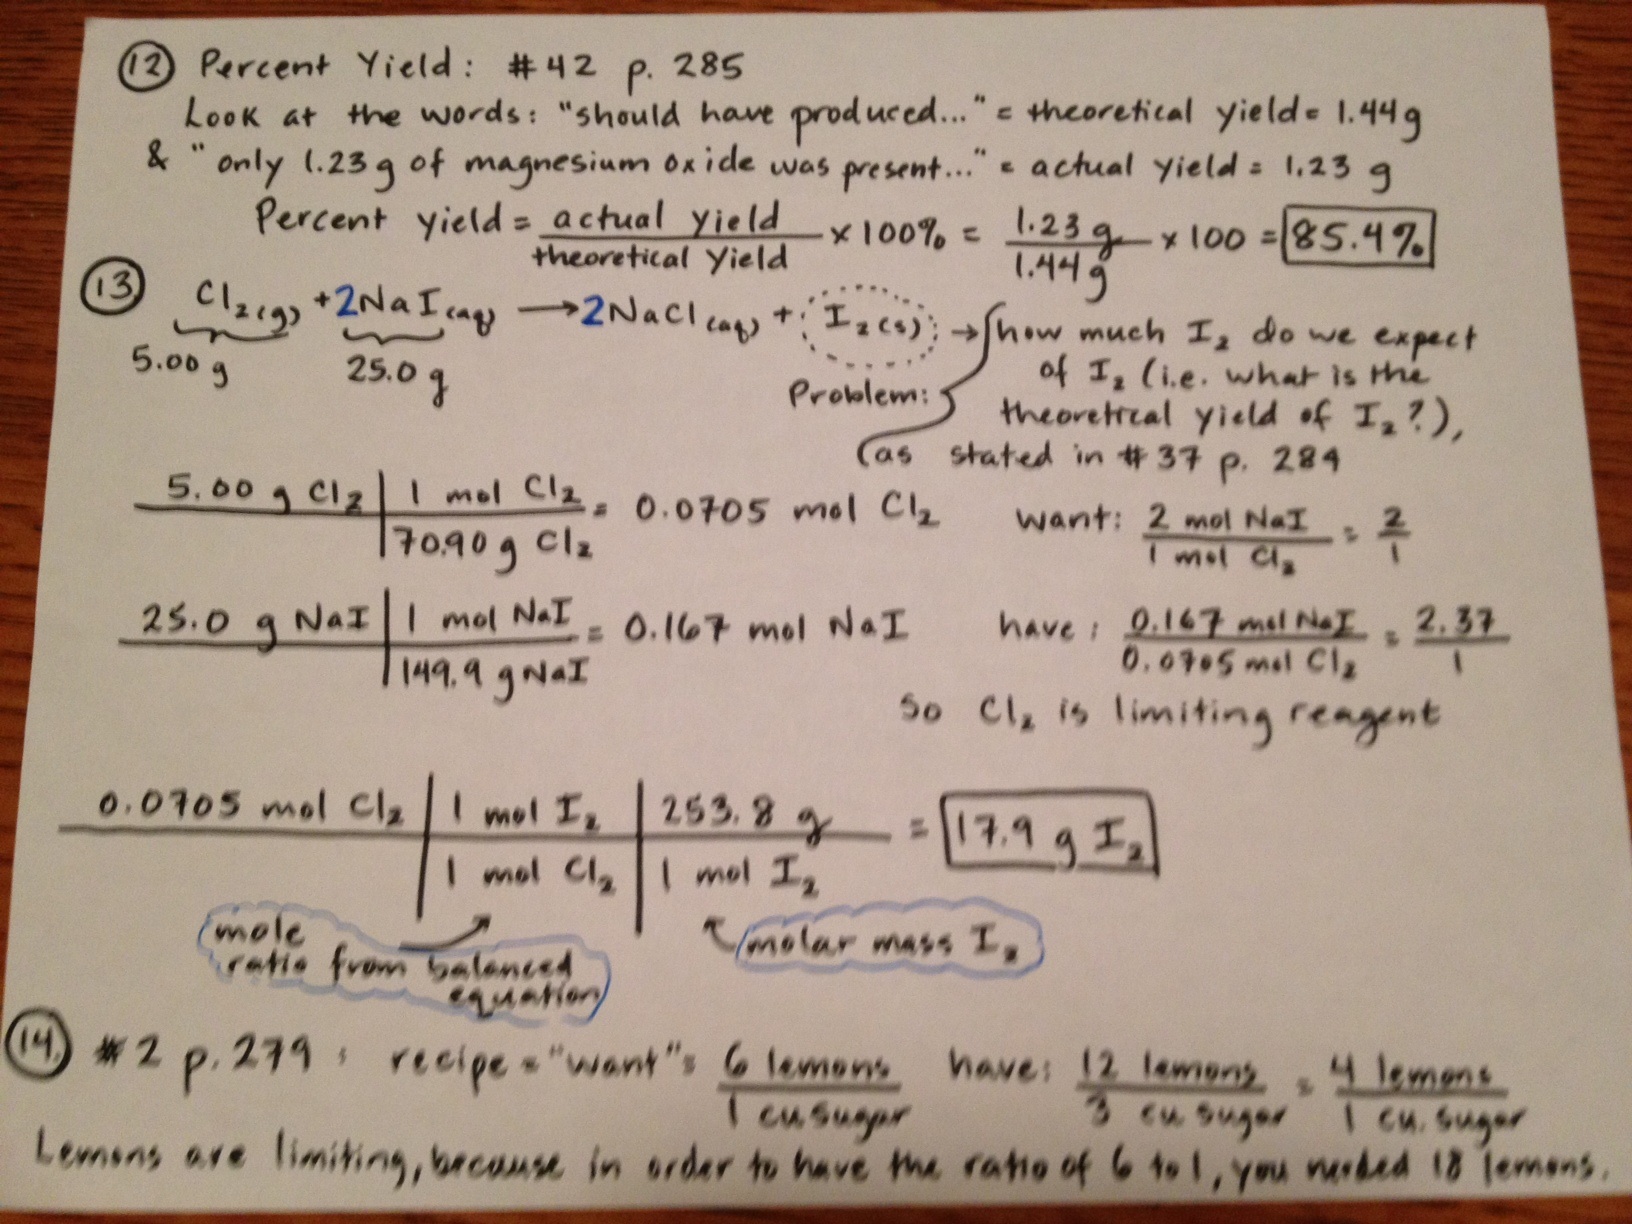 12 Percent Yield: #42 p. 285
Look at the words: "should have produced..." = theoretical yield = 1.44g
& "only 1.23g of magnesium oxide was present..." = actual yield = 1.23 g
Percent yield = actual yield / theoretical Yield × 100% = 1.23 g / 1.44 g × 100 = 85.4%
13 Cl₂(g) + 2NaI(aq) → 2NaCl(aq) + I₂(s) → how much I₂ do we expect
5.00 g 25.0 g
Problem: of I₂ (i.e. what is the
theoretical yield of I₂?),
(as stated in #37 p. 284
5.00 g Cl₂ | 1 mol Cl₂ / 70.90 g Cl₂ = 0.0705 mol Cl₂
want: 2 mol NaI / 1 mol Cl₂ = 2/1
25.0 g NaI | 1 mol NaI / 149.9 g NaI = 0.167 mol NaI
have: 0.167 mol NaI / 0.0705 mol Cl₂ = 2.37/1
so Cl₂ is limiting reagent
0.0705 mol Cl₂ | 1 mol I₂ / 1 mol Cl₂ | 253.8 g / 1 mol I₂ = 17.9 g I₂
mole
ratio from balanced
equation
molar mass I₂
14. #2 p. 279: recipe = "want" = 6 lemons / 1 cu sugar have: 12 lemons / 3 cu sugar = 4 lemons / 1 cu. sugar
Lemons are limiting, because in order to have the ratio of 6 to 1, you needed 18 lemons.